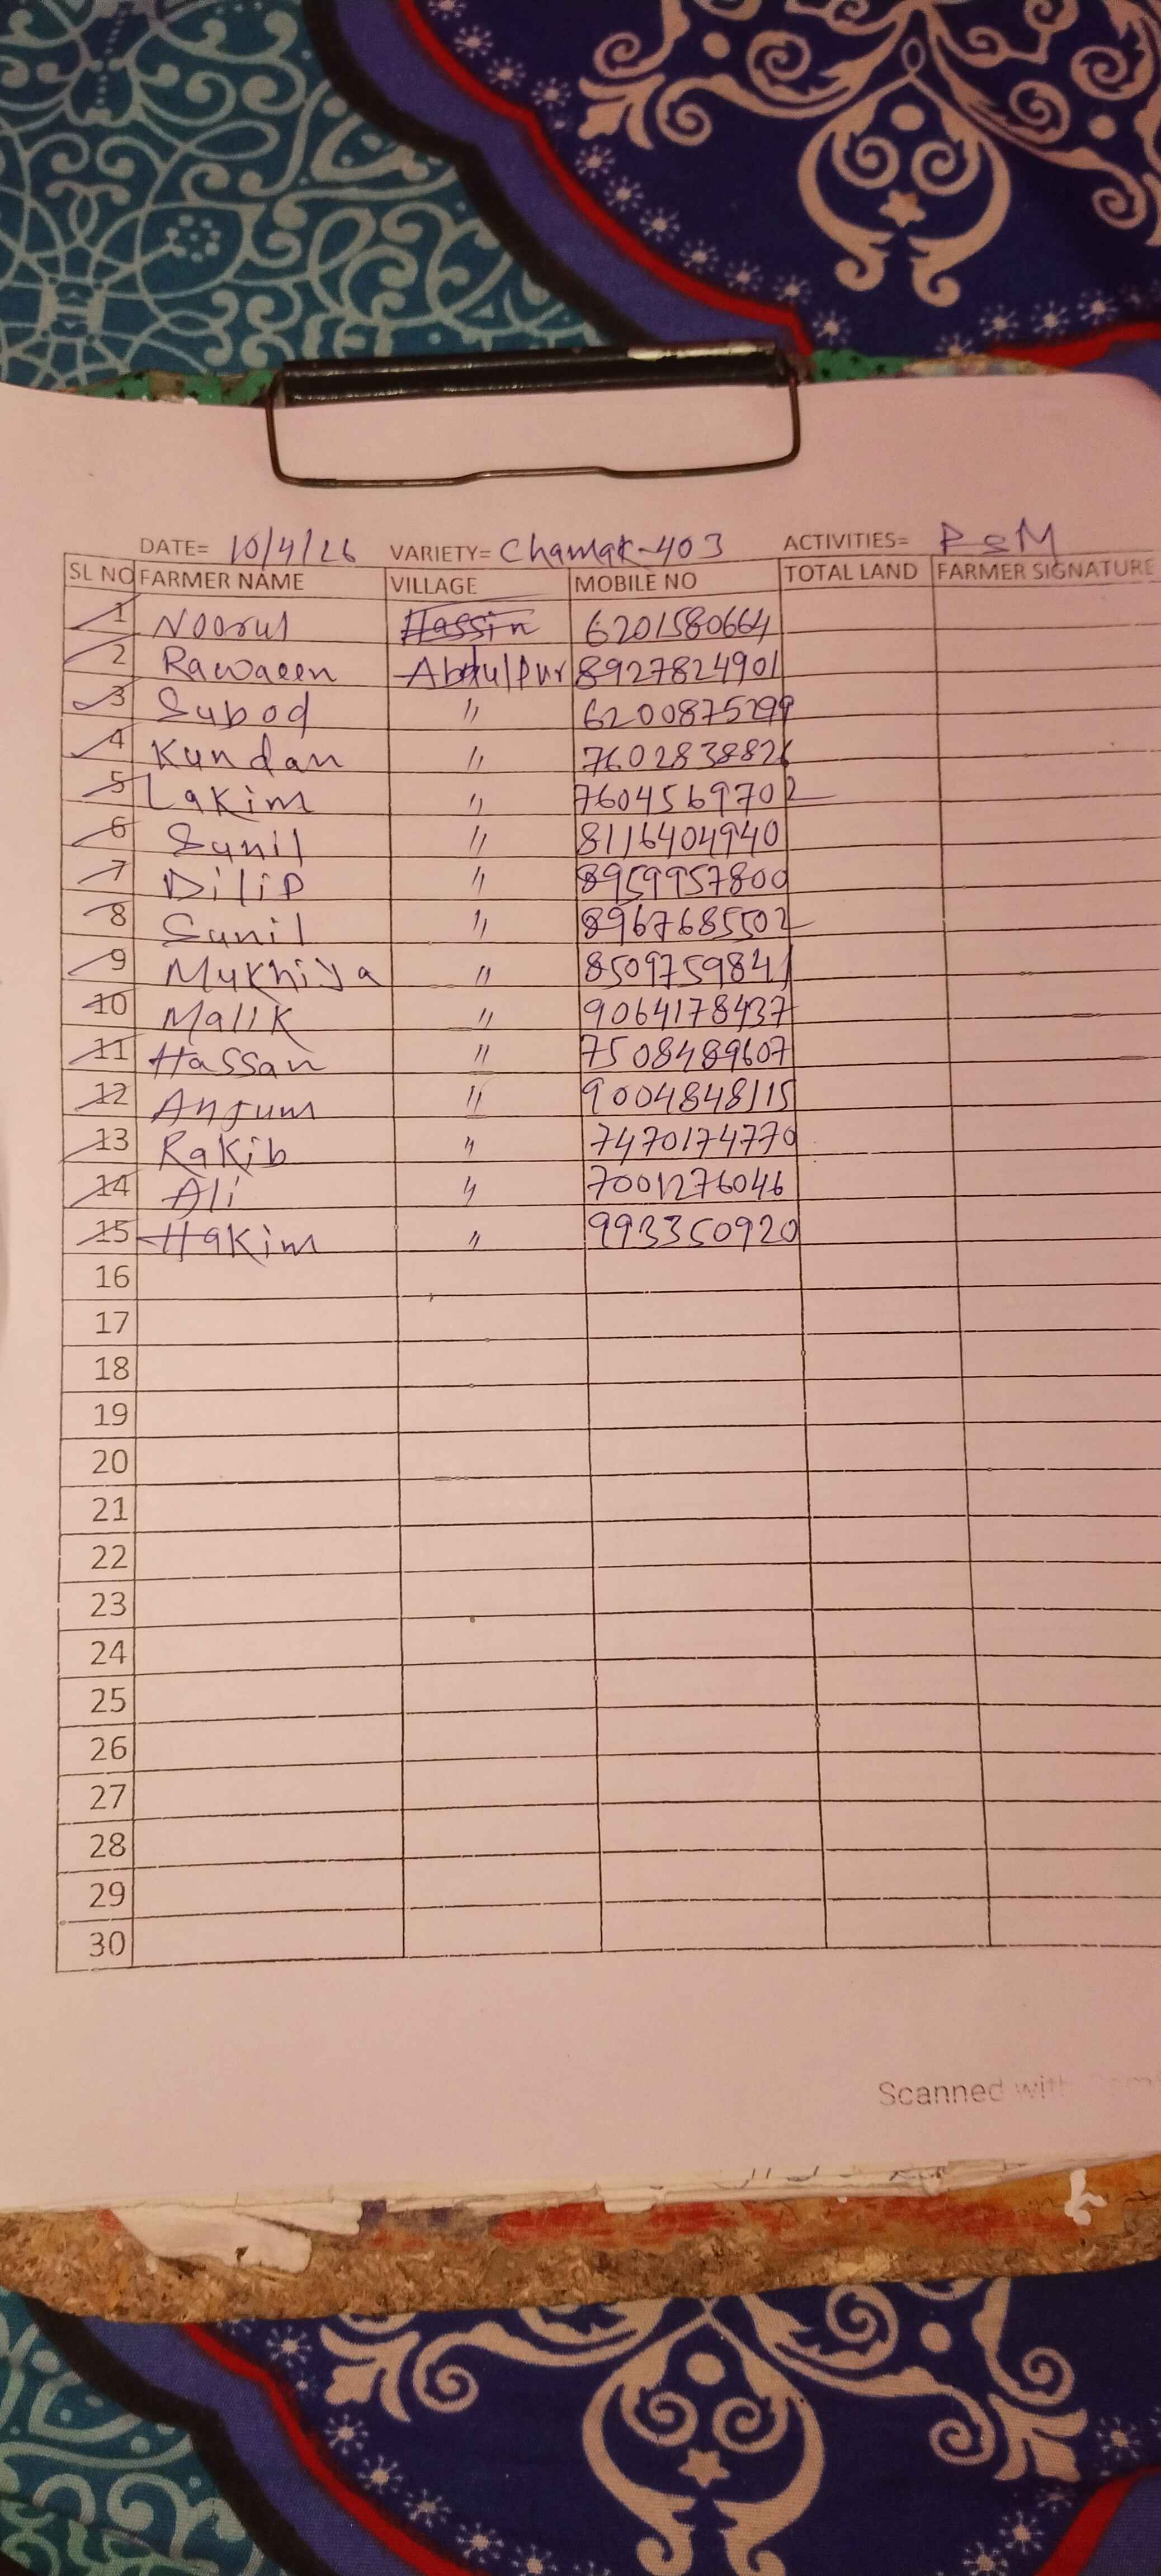 DATE= 10/4/26 VARIETY= Chamak-403 ACTIVITIES= PSM
SL NO FARMER NAME VILLAGE MOBILE NO TOTAL LAND FARMER SIGNATURE
1 Noorul Hassin 6201580664
2 Rawaeen Abdulpur 8927824901
3 Subod " 6200875299
4 Kundan " 7602838826
5 Lakim " 7604569702
6 Sunil " 8116404940
7 Dilip " 8959957800
8 Sunil " 8967685502
9 Mukhiya " 8509759841
10 Malik " 9064178437
11 Hassan " 7508489607
12 Anjum " 9004848115
13 Rakib " 7470174770
14 Ali " 7001276046
15 Hakim " 993350920
16
17
18
19
20
21
22
23
24
25
26
27
28
29
30
Scanned with